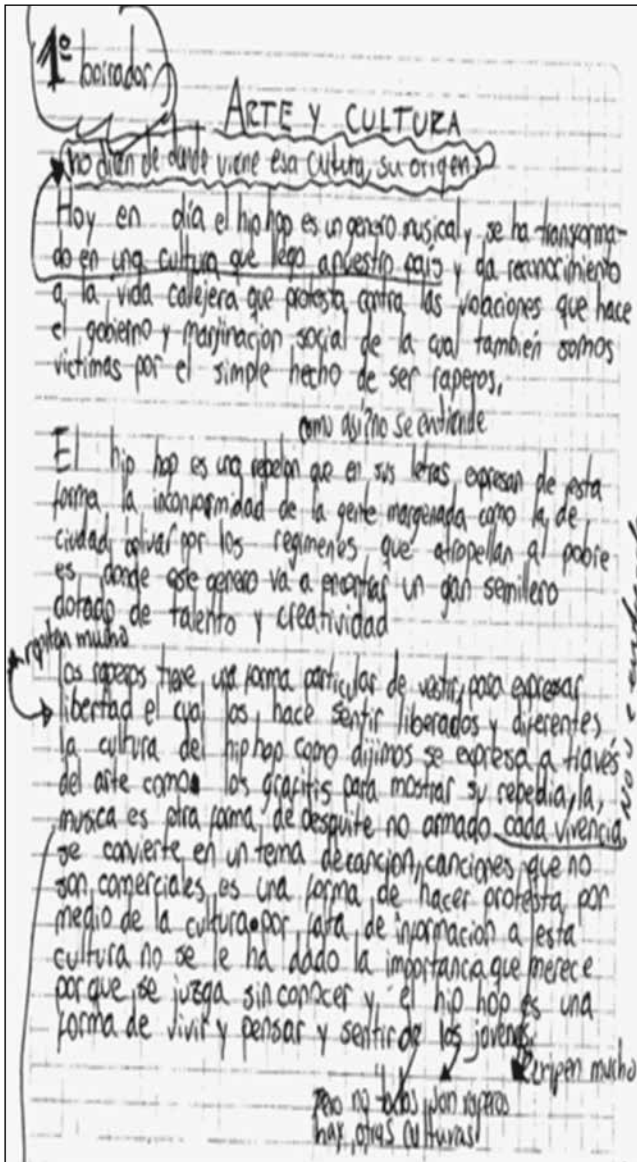 1º borrador
ARTE Y CULTURA
no dicen de donde viene esa cultura, su origen
Hoy en día el hip hop es un genero musical y se ha transforma-
do en una cultura que llego a nuestro país y da reconocimiento
a la vida callejera que protesta contra las violaciones que hace
el gobierno y marjinacion social de la cual también somos
victimas por el simple hecho de ser raperos,
como asi? no se entiende
El hip hop es una que en sus letras expresan de esta
forma la inconformidad de la gente margenada como la de
ciudad bolivar por los regimenes que atropellan al pobre
es donde este genero va a encontrar un gan semillero
dotado de talento y creatividad
repiten mucho
los raperos tiene una forma particular de vestir, para expresar
libertad el cual los hace sentir liberados y diferentes
la cultura del hip hop como dijimos se expresa a través
del arte como los grafitis para mostrar su la,
musica es otra forma de desquite no armado cada vivencia
se convierte en un tema de cancion, canciones que no
son comerciales es una forma de hacer protesta por
medio de la cultura por falta de informacion a esta
cultura no se le ha dado la importancia que merece
porque se juzga sin conocer y el hip hop es una
forma de vivir y pensar y sentir de los jovenes.
mucho
Pero no todos son raperos
hay otras culturas